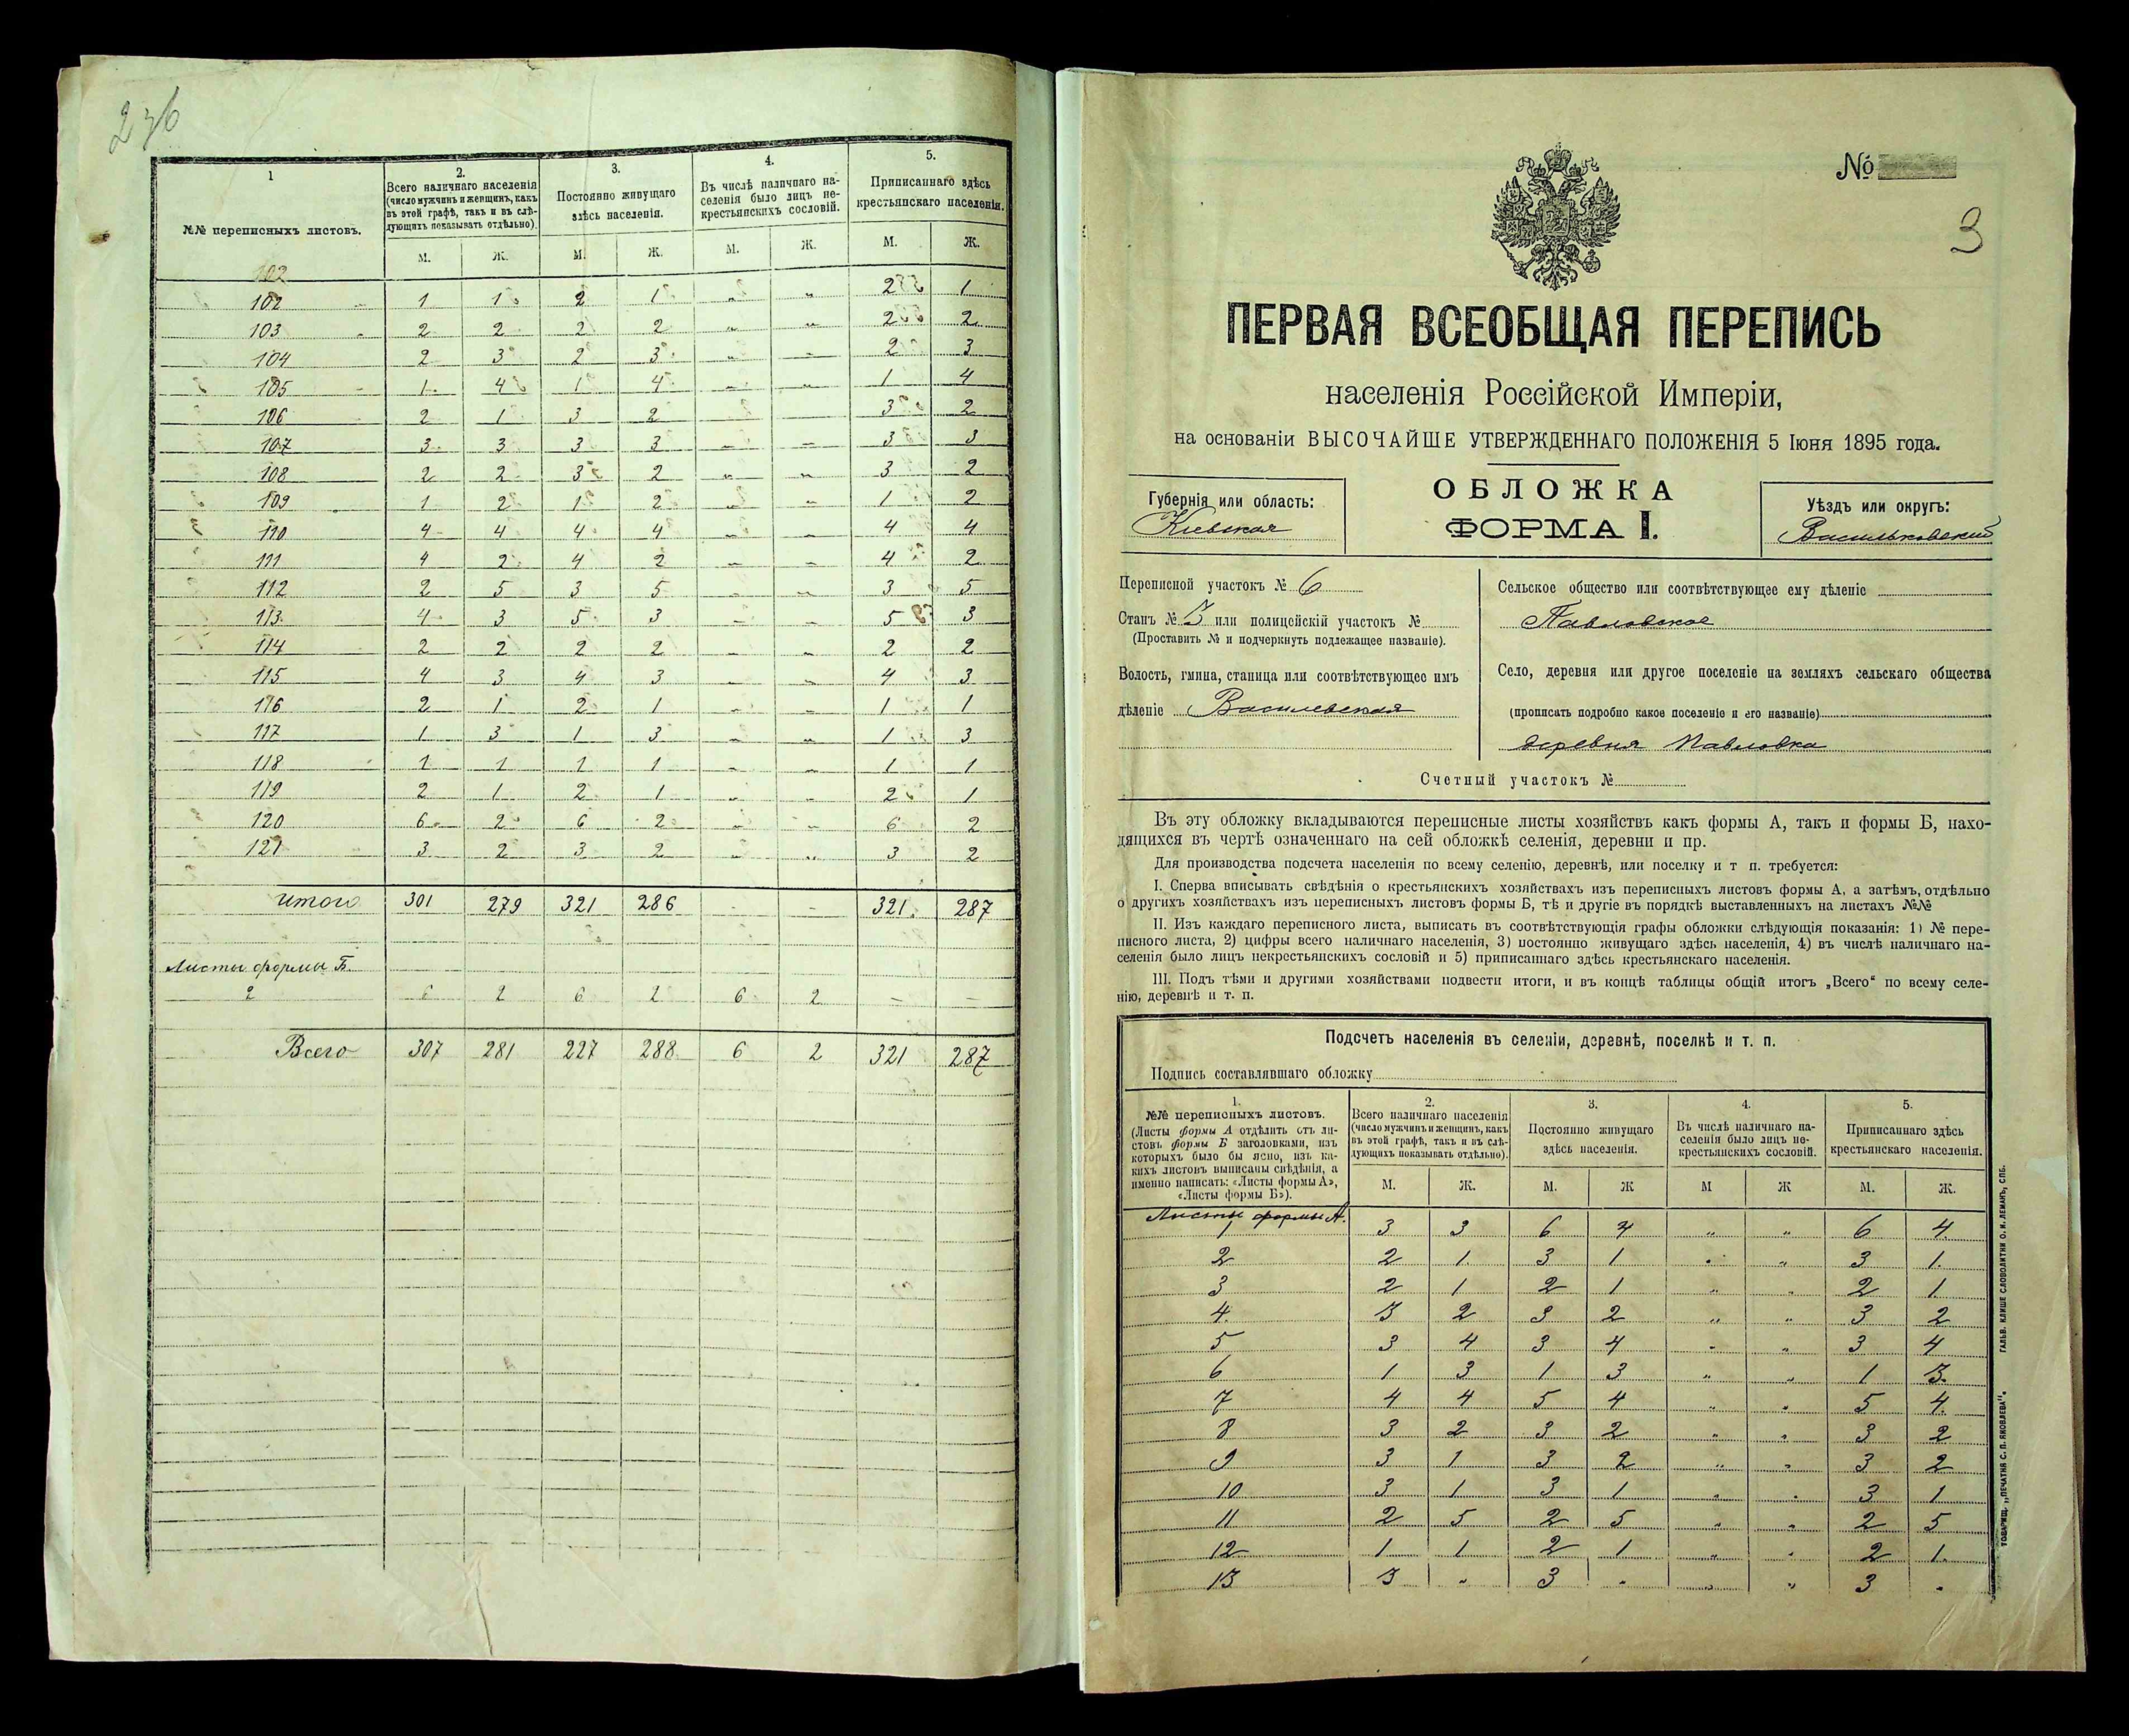 236
1
2.
3.
4.
5.
№№ переписныхъ листовъ.
Всего наличнаго населенія
(число мужчинъ и женщинъ, какъ
въ этой графѣ, такъ и въ слѣ-
дующихъ показывать отдѣльно).
Постоянно живущаго
здѣсь населенія.
Въ числѣ наличнаго на-
селенія было лицъ не-
крестьянскихъ сословій.
Приписаннаго здѣсь
крестьянскаго населенія.
М. Ж. М. Ж. М. Ж. М. Ж.
102
102 1 1 2 1 „ „ 2 1
103 2 2 2 2 „ „ 2 2
104 2 3 2 3 „ „ 2 3
105 1 4 1 4 „ „ 1 4
106 2 1 3 2 3 2
107 3 3 3 3 „ „ 3 3
108 2 2 3 2 „ „ 3 2
109 1 2 1 2 „ „ 1 2
110 4 4 4 4 „ „ 4 4
111 4 2 4 2 „ „ 4 2
112 2 5 3 5 „ „ 3 5
113 4 3 5 3 „ „ 5 3
114 2 2 2 2 „ „ 2 2
115 4 3 4 3 „ „ 4 3
116 2 1 2 1 „ „ 1 1
117 1 3 1 3 „ „ 1 3
118 1 1 1 1 „ „ 1 1
119 2 1 2 1 „ „ 2 1
120 6 2 6 2 „ „ 6 2
121 3 2 3 2 „ „ 3 2
Итого 301 279 321 286 - - 321 287
Листы формы Б.
2 6 2 6 2 6 2 — —
Всего 307 281 227 288 6 2 321 287
№
3
ПЕРВАЯ ВСЕОБЩАЯ ПЕРЕПИСЬ
населенія Россійской Имперіи,
на основаніи ВЫСОЧАЙШЕ УТВЕРЖДЕННАГО ПОЛОЖЕНІЯ 5 Іюня 1895 года.
Губернія или область:
Кіевская
ОБЛОЖКА
ФОРМА I.
Уѣздъ или округъ:
Васильковский
Переписной участокъ № 6
Станъ № 3 или полицейскій участокъ №
(Проставить № и подчеркнуть подлежащее названіе).
Волость, гмина, станица или соотвѣтствующее имъ
дѣленіе Василевская
Сельское общество или соотвѣтствующее ему дѣленіе
Павловское
Село, деревня или другое поселеніе на земляхъ сельскаго общества
(прописать подробно какое поселеніе и его названіе)
деревня Павловка
Счетный участокъ №
Въ эту обложку вкладываются переписные листы хозяйствъ какъ формы А, такъ и формы Б, нахо-
дящихся въ чертѣ означеннаго на сей обложкѣ селенія, деревни и пр.
Для производства подсчета населенія по всему селенію, деревнѣ, или поселку и т п. требуется:
I. Сперва вписывать свѣдѣнія о крестьянскихъ хозяйствахъ изъ переписныхъ листовъ формы А, а затѣмъ, отдѣльно
о другихъ хозяйствахъ изъ переписныхъ листовъ формы Б, тѣ и другіе въ порядкѣ выставленныхъ на листахъ №№
II. Изъ каждаго переписного листа, выписать въ соотвѣтствующія графы обложки слѣдующія показанія: 1) № пере-
писного листа, 2) цифры всего наличнаго населенія, 3) постоянно живущаго здѣсь населенія, 4) въ числѣ наличнаго на-
селенія было лицъ некрестьянскихъ сословій и 5) приписаннаго здѣсь крестьянскаго населенія.
III. Подъ тѣми и другими хозяйствами подвести итоги, и въ концѣ таблицы общій итогъ „Всего“ по всему селе-
нію, деревнѣ и т. п.
Подсчетъ населенія въ селеніи, деревнѣ, поселкѣ и т. п.
Подпись составлявшаго обложку
1.
2.
3.
4.
5.
№№ переписныхъ листовъ.
(Листы формы А отдѣлить отъ ли-
стовъ формы Б заголовками, изъ
которыхъ было бы ясно, изъ ка-
кихъ листовъ выписаны свѣдѣнія, а
именно написать: «Листы формы А»,
«Листы формы Б»).
Всего наличнаго населенія
(число мужчинъ и женщинъ, какъ
въ этой графѣ, такъ и въ слѣ-
дующихъ показывать отдѣльно).
Постоянно живущаго
здѣсь населенія.
Въ числѣ наличнаго на-
селенія было лицъ не-
крестьянскихъ сословій.
Приписаннаго здѣсь
крестьянскаго населенія.
М. Ж. М. Ж М Ж М. Ж.
Листы формы А.
1 3 3 6 4 „ „ 6 4
2 2 1 3 1 „ „ 3 1
3 2 1 2 1 „ „ 2 1
4. 3 2 3 2 „ „ 3 2
5 3 4 3 4 „ „ 3 4
6 1 3 1 3 „ „ 1 3
7 4 4 5 4 „ „ 5 4
8 3 2 3 2 „ „ 3 2
9 3 1 3 2 „ „ 3 2
10 3 1 3 1 „ „ 3 1
11 2 5 2 5 „ „ 2 5
12 1 1 2 1 „ „ 2 1
13 3 „ 3 „ „ „ 3 „
ТОВАРИЩ. „ПЕЧАТНЯ С. П. ЯКОВЛЕВА“. ГАЛЬВ. КЛИШЕ СЛОВОЛИТНИ О. И. ЛЕМАНЪ, СПБ.